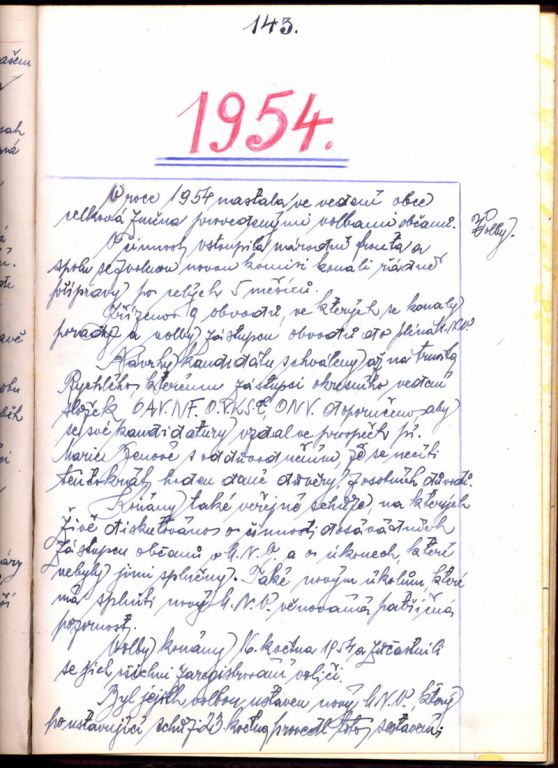 143.
1954.
V roce 1954 nastala ve vedení obce
celková změna provedenými volbami občanů.
Volby.
V činnost vstoupila národní fronta a
spolu se zvolenou novou komisí konali řádné
přípravy po celých 5 měsíců.
Zřízeno 9 obvodů, ve kterých se konaly
porady a volby zástupců obvodů do
Návrhy kandidátů schváleny až na
Rychlého, kterému zástupci okresního vedení
složek OAV.NF. O.V.KSČ, ONV. doporučeno, aby
se své kandidatury vzdal ve prospěch
Marie s odůvodněním že se necítí
hoden dané důvěry, z osobních důvodů.
Konány také veřejné schůze, na kterých
živě diskutováno o činnosti dosavadních
zástupců občanů v M.N.V. a o úkonech, které
nebyly jimi splněny. Také novým úkolům které
má splniti nový M.N.V. věnovaná patřičná
pozornost.
Volby konány 16. května 1954 a zúčastnili
se jich všichni zaregistrovaní voliči.
Byl jejich volbou ustaven nový M.N.V., který
po ustavující schůzi května provedl toto sestavení: